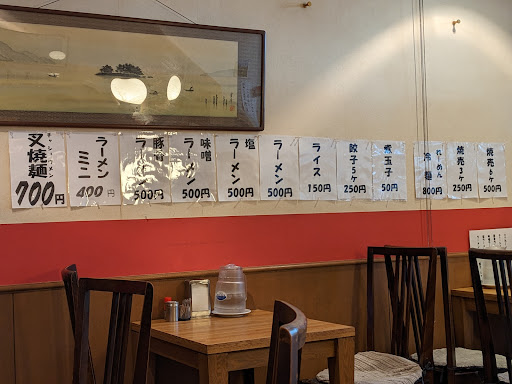 チャーシューメン
叉焼麺
700円
ラーメン
ミニ
400円
豚骨
ラーメン
500円
味噌
ラーメン
500円
塩
ラーメン
500円
ラーメン
500円
ライス
150円
餃子5ケ
250円
煮玉子
50円
れーめん
冷麺
800円
焼売3ケ
250円
焼売6ケ
500円